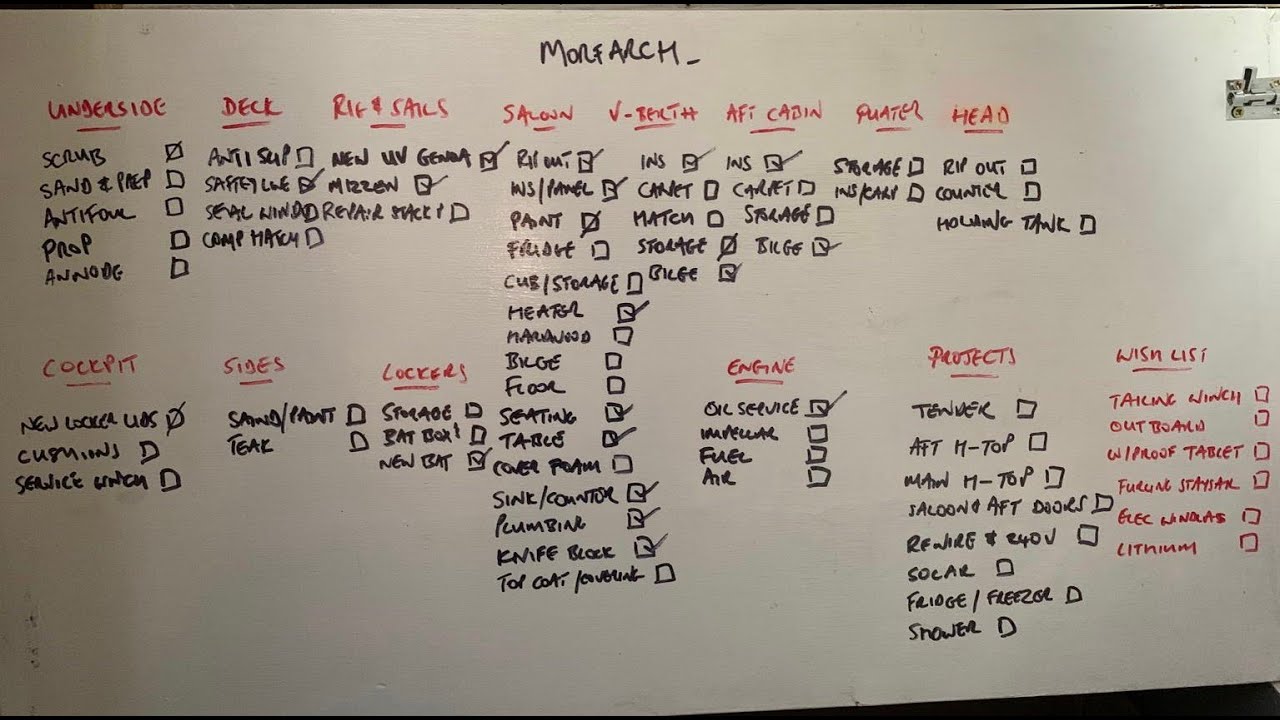 MORFARCH
UNDERSIDE
SCRUB
SAND & PREP
ANTIFOUL
PROP
ANNODE
DECK
ANTI SLIP
SAFTEY LINE
SEAL WIND
COMP HATCH
RIG & SAILS
NEW UV GENOA
MIZZEN
REPAIR STACK P
SALOON
RIP OUT
INS/PANEL
PAINT
FRIDGE
CUB/STORAGE
HEATER
HARDWOOD
BILGE
FLOOR
SEATING
TABLE
COVER FOAM
SINK/COUNTOR
PLUMBING
KNIFE BLOCK
TOP COAT/COVERING
V-BERTH
INS
CARPET
HATCH
STORAGE
BILGE
AFT CABIN
INS
CARPET
STORAGE
BILGE
QUATER
STORAGE
INS/CARP
HEAD
RIP OUT
COUNTER
HOLDING TANK
COCKPIT
NEW LOCKER LIDS
CUSHIONS
SERVICE WINCH
SIDES
SAND/PAINT
TEAK
LOCKERS
STORAGE
BAT BOX
NEW BAT
ENGINE
OIL SERVICE
IMPELLAR
FUEL
AIR
PROJECTS
TENDER
AFT H-TOP
MAIN H-TOP
SALOON & AFT DOORS
REWIRE & 240V
SOLAR
FRIDGE/FREEZER
SHOWER
WISH LIST
TAILING WINCH
OUTBOARD
W/PROOF TABLET
FURLING STAYSAIL
ELEC WINDLASS
LITHIUM